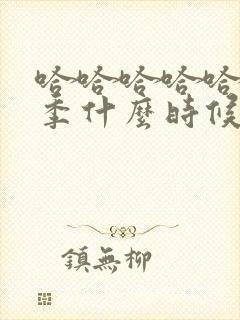 哈哈哈哈哈
季什麼時候
鎮無柳